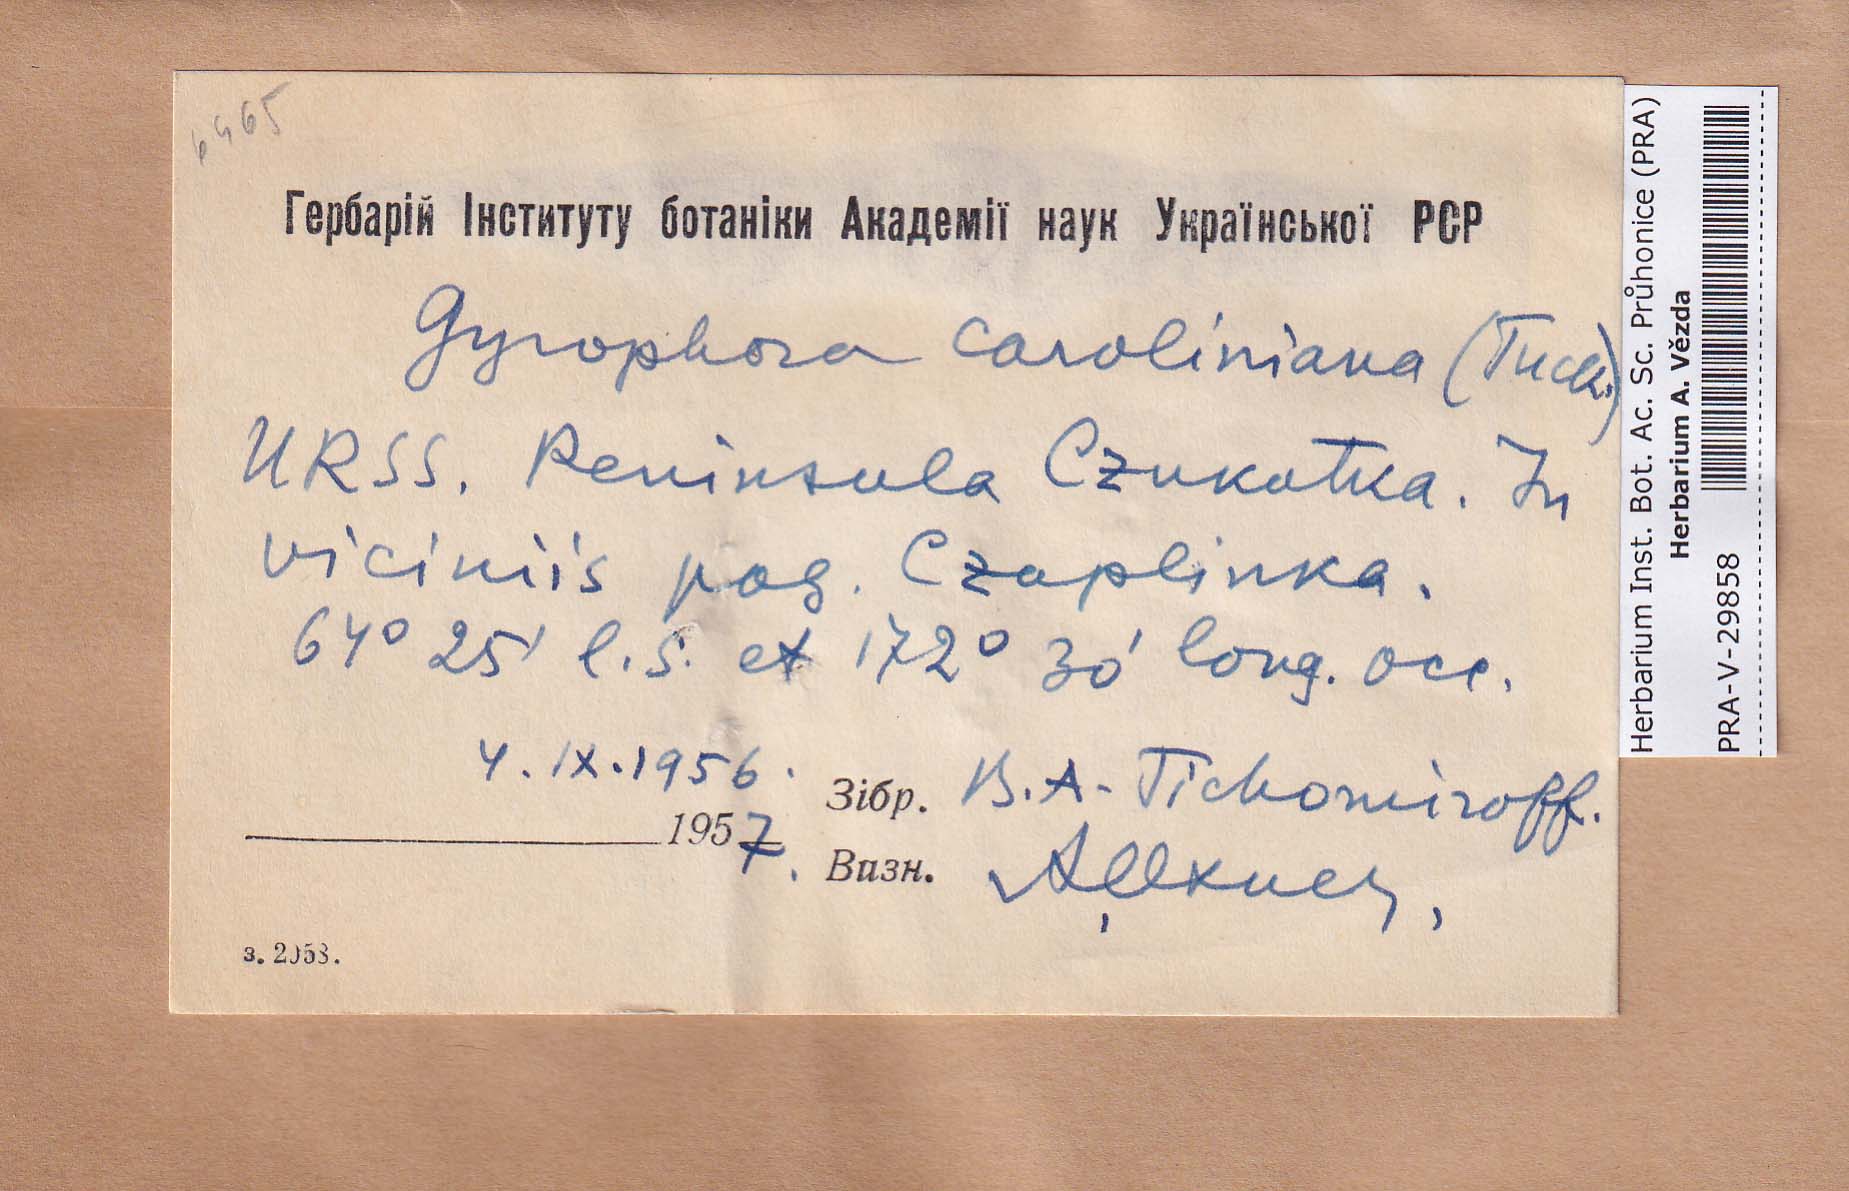 6465
Гербарій Інституту ботаніки Академії наук Української РСР
Gyrophora caroliniana (Tuck.)
URSS. Peninsula Czukotka. In
viciniis pag. Czaplinka.
64° 25' l.s. et 172° 30' long. occ.
4.IX.1956.
Зібр. B.A. Tichomiroff.
1957.
Визн.
з. 2058.
Herbarium Inst. Bot. Ac. Sc. Průhonice (PRA)
Herbarium A. Vězda
PRA-V-29858